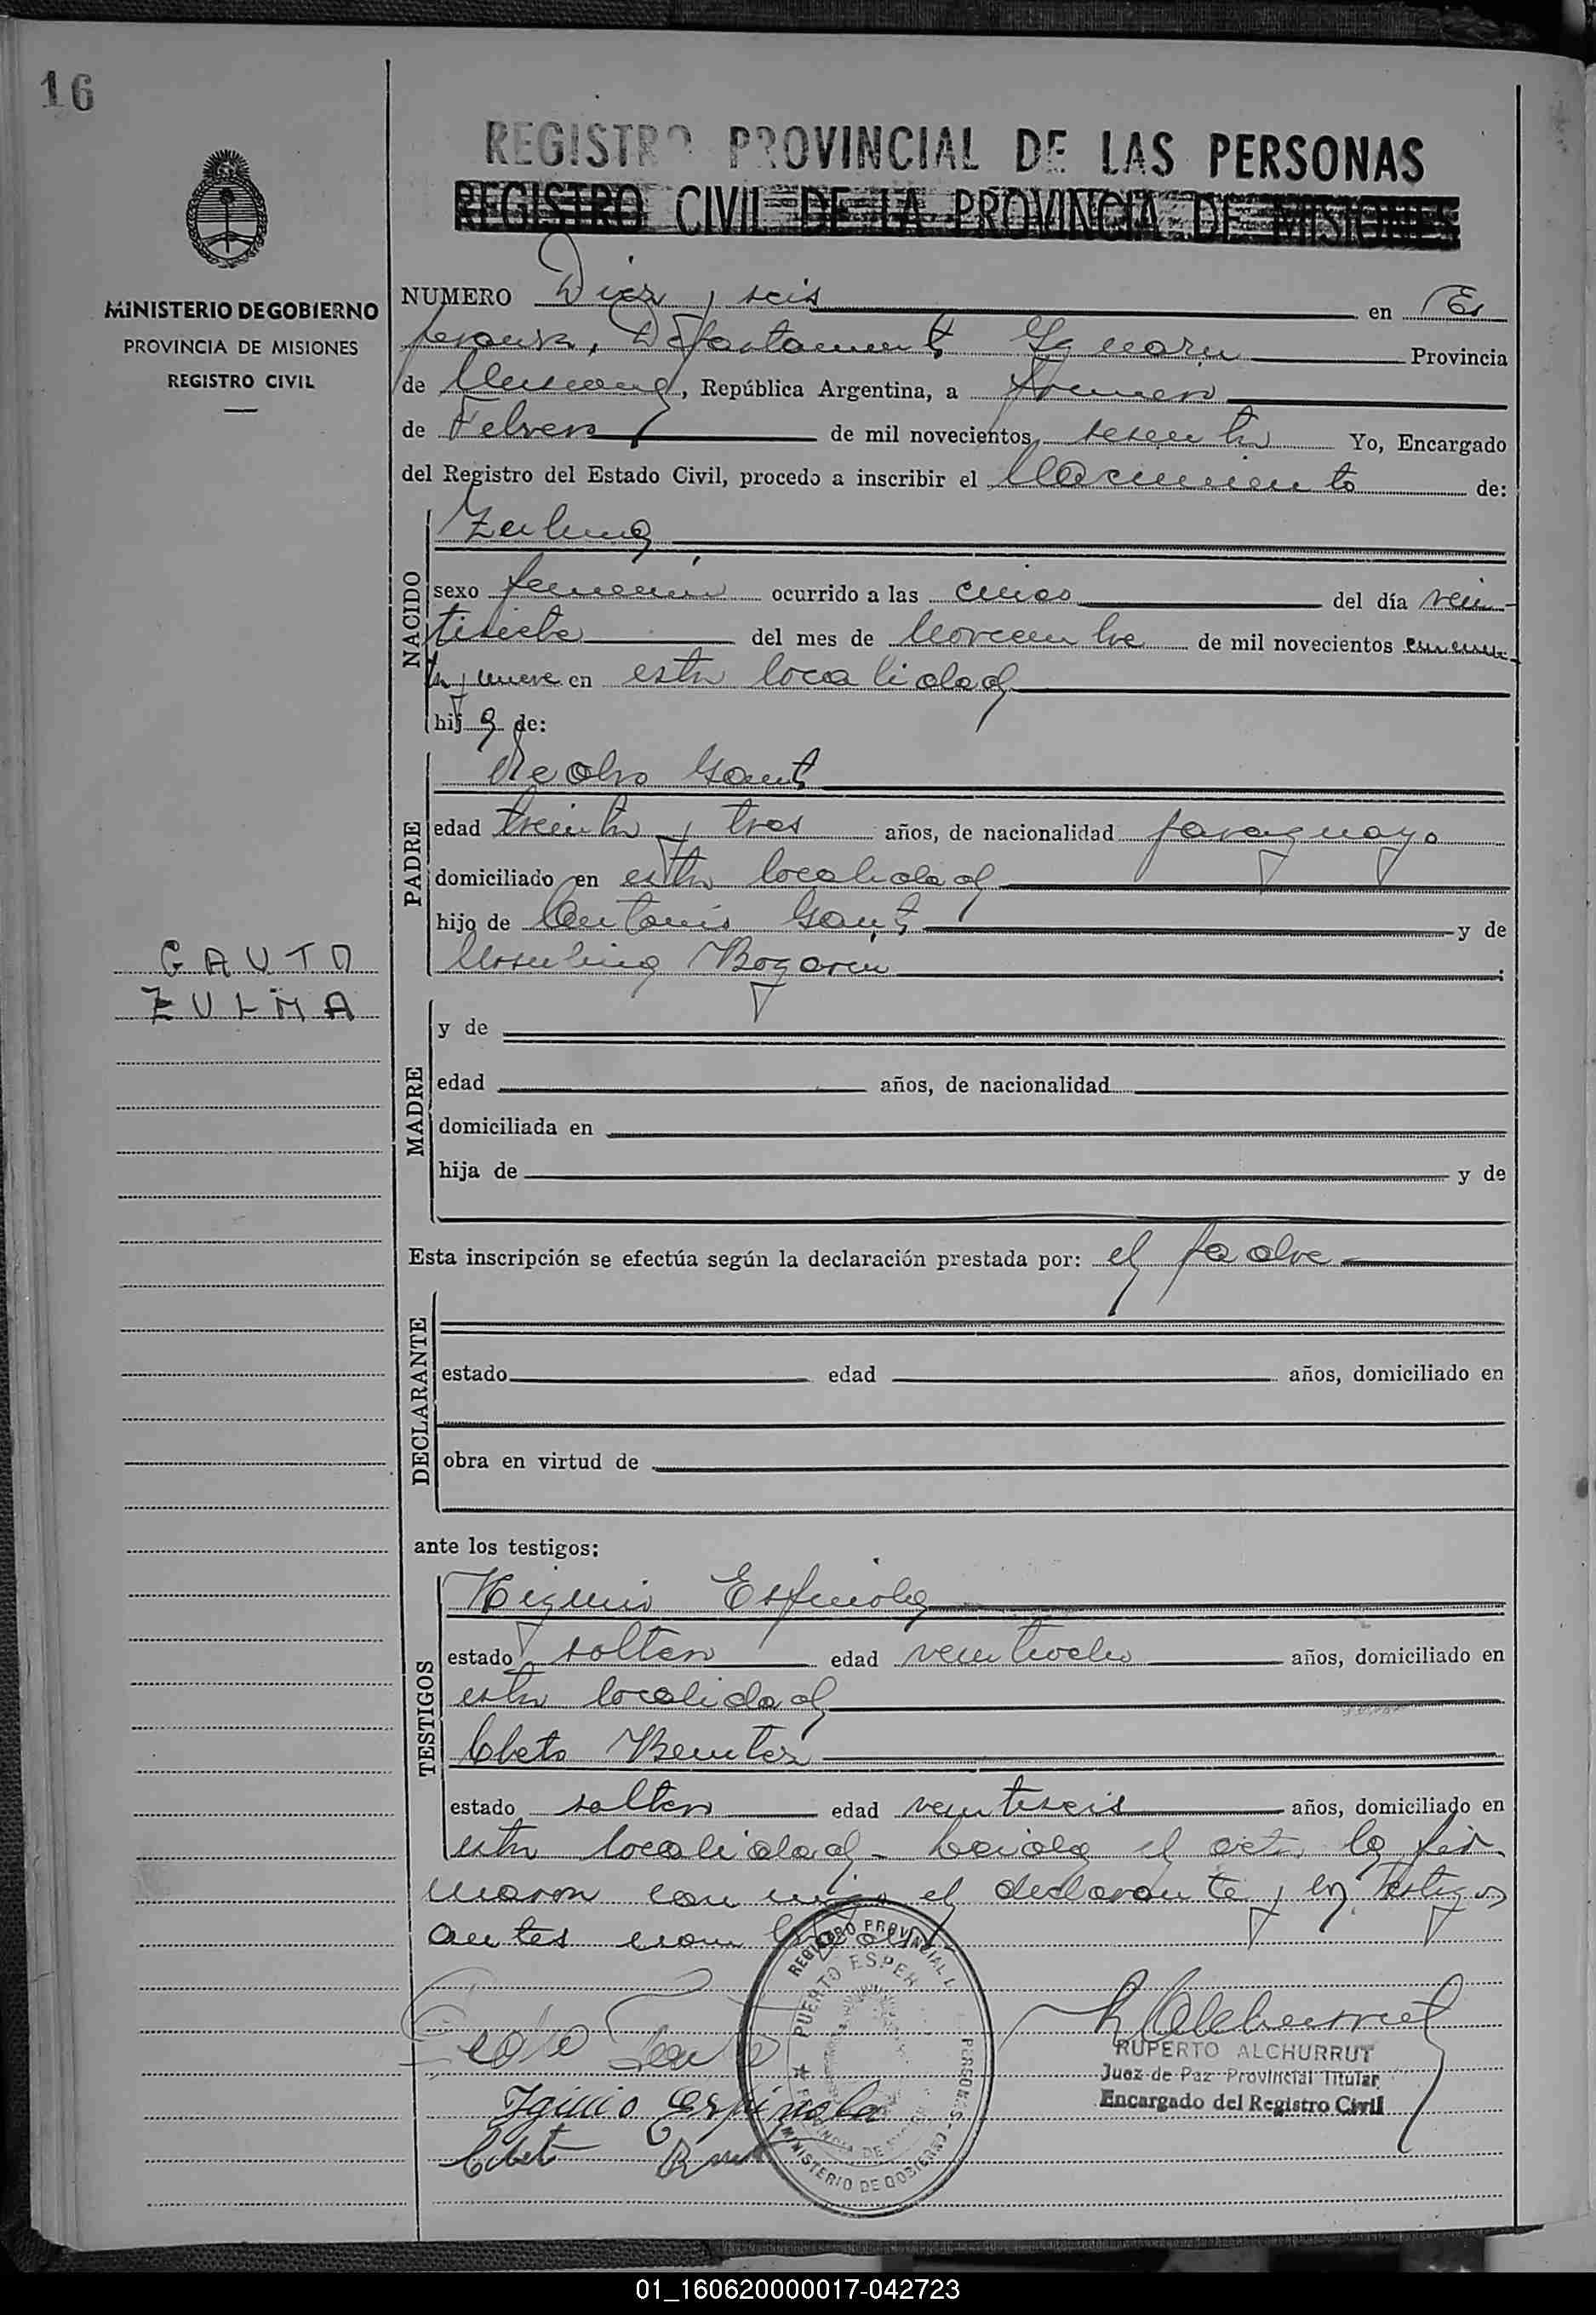 16
REGISTRO PROVINCIAL DE LAS PERSONAS
REGISTRO CIVIL DE LA PROVINCIA DE MISIONES
MINISTERIO DE GOBIERNO
PROVINCIA DE MISIONES
REGISTRO CIVIL
NUMERO Diez y seis en Es
peranza, Departamento Iguazu Provincia
de Misiones, República Argentina, a primero
de Febrero de mil novecientos sesenta Yo, Encargado
del Registro del Estado Civil, procedo a inscribir el Nacimiento de:
NACIDO
Zulma
sexo femenino ocurrido a las cinco del día vein
tisiete del mes de Noviembre de mil novecientos cincuen
ta y nueve en esta localidad
hij a de:
PADRE
Gauto
edad treinta y tres años, de nacionalidad paraguayo
domiciliado en esta localidad
hijo de Antonio Gauto y de
Bogarin
GAUTO
ZULMA
MADRE
y de
edad años, de nacionalidad
domiciliada en
hija de y de
Esta inscripción se efectúa según la declaración prestada por: el padre
DECLARANTE
estado edad años, domiciliado en
obra en virtud de
ante los testigos:
TESTIGOS
Higinio Espinola
estado soltero edad veintiocho años, domiciliado en
esta localidad
Cleto Benitez
estado soltero edad veintiseis años, domiciliado en
esta localidad - Leida el acta la fir
maron conmigo el declarante y los testigos
antes nombrados
REGISTRO PROVINCIAL PERSONAS - MINISTERIO DE GOBIERNO
PUERTO ESPER
PROVINCIA DE
Iginio Espinola
Cleto
RUPERTO ALCHURRUT
Juez de Paz Provincial Titular
Encargado del Registro Civil
01_160620000017-042723